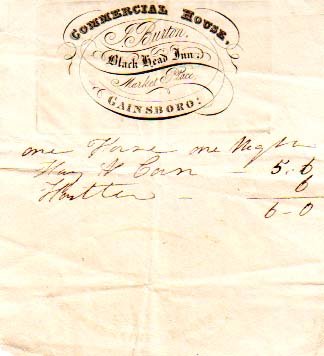 COMMERCIAL HOUSE,
J. Burton,
Black Head Inn
Market Place,
GAINSBORO:
one Horse one Night
Hay & Corn - 5.6
Hostler - 6
6-0